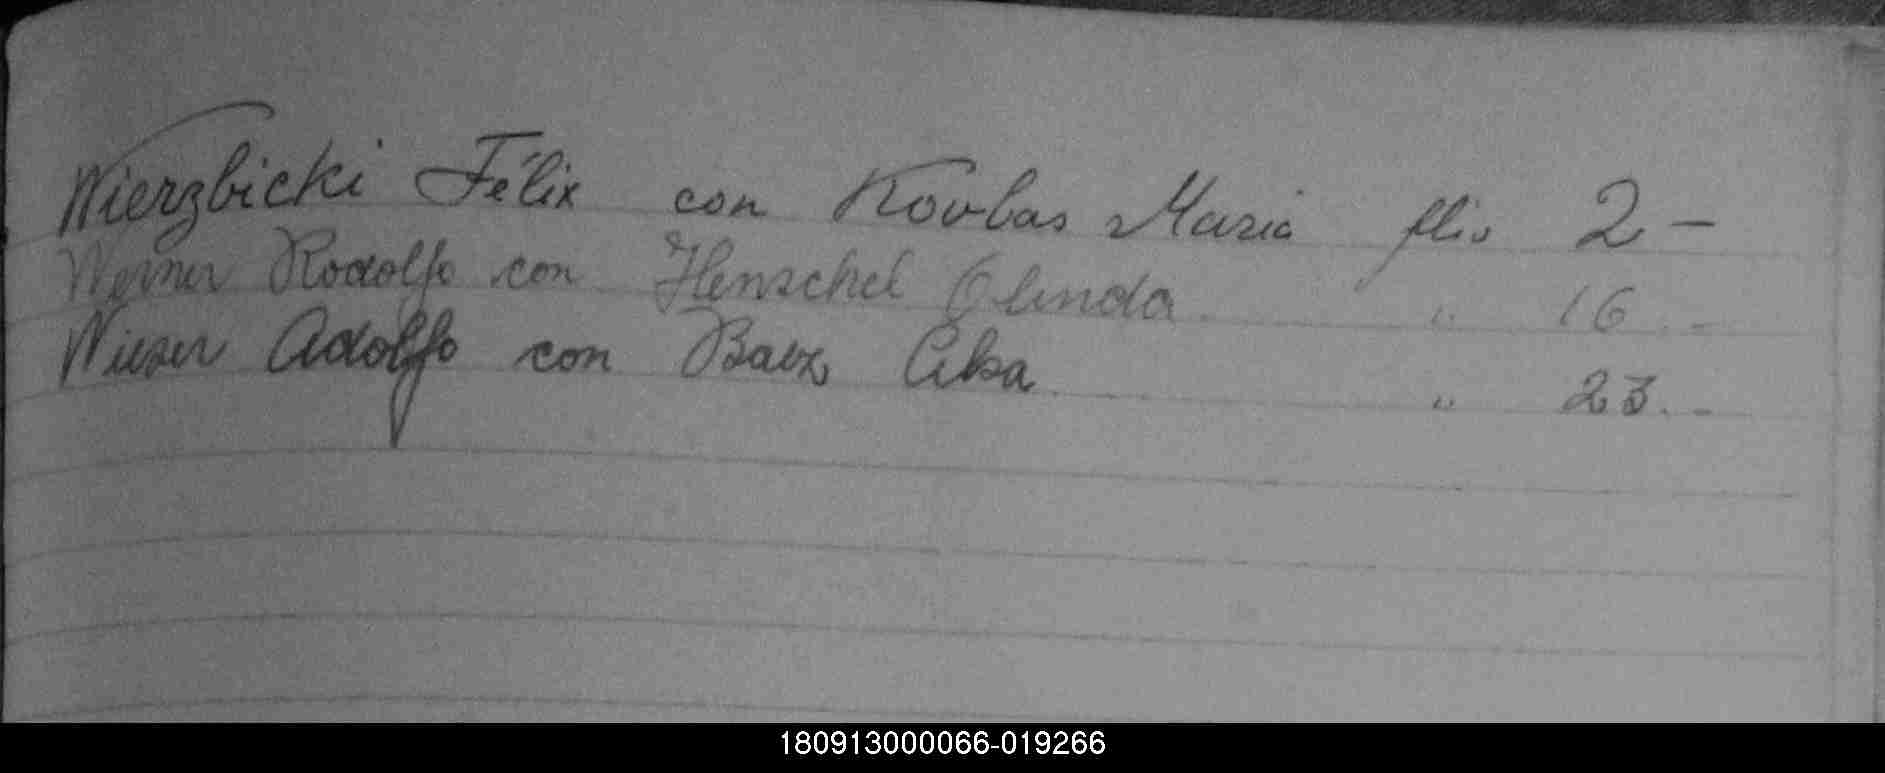 Wierzbicki Félix con Kovbas Maria flio 2 —
Werner Rodolfo con Henschel Olinda " 16.-
Wieser Adolfo con Baez " 23.-
180913000066-019266